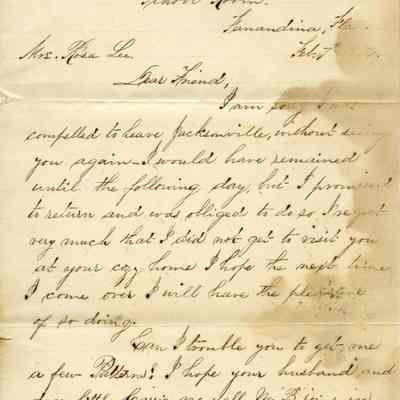 School Room.
Fernandina, Fla.
Mrs. Rosa Lee. Feb. 7
Dear Friend,
I am sorry I was
compelled to leave Jacksonville, without seeing
you again. I would have remained
until the following day, but I promised
to return and was obliged to do so. I regret
very much that I did not get to visit you
at your cozy home I hope the next time
I come over I will have the pleasure
of so doing.
Can I trouble you to get me
a few Patterns? I hope your husband and
little are well